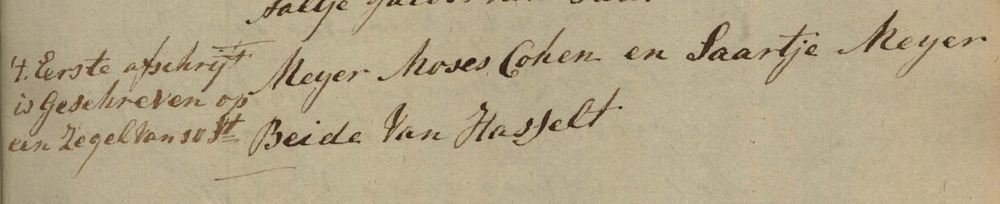 Aaltje
't Eerste afschrijt
is Geschreven op
een Zegel van 10 St
Meyer Moses Cohen en Saartje Meyer
Beide Van Hasselt